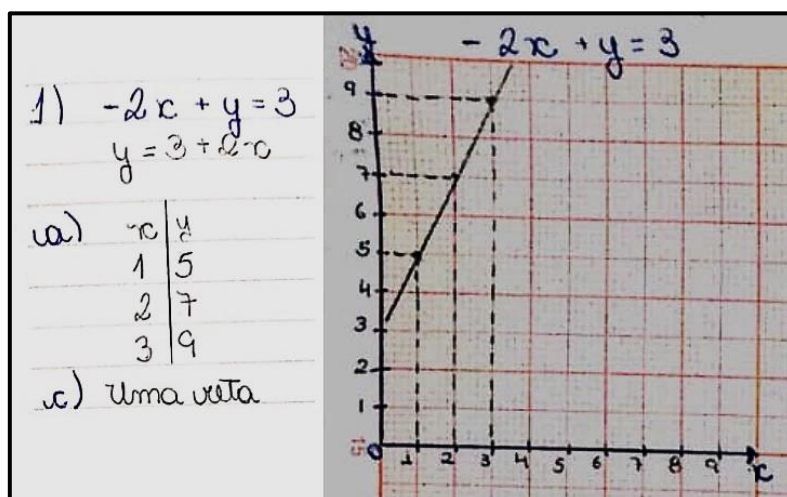 1) -2x + y = 3
y = 3 + 2·x
a) x | y
1 | 5
2 | 7
3 | 9
c) Uma reta
-2x + y = 3
y
20
9
8
7
6
5
4
3
2
1
15
0
1 2 3 4 5 6 7 8 9 x